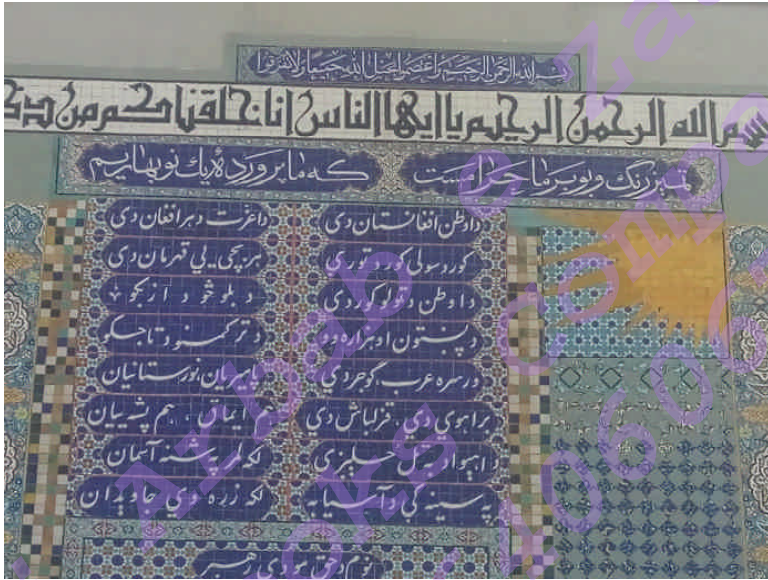 بسم الله الرحمن الرحيم واعتصموا بحبل الله جميعا ولا تفرقوا
بسم الله الرحمن الرحيم يا ايها الناس انا خلقناكم من ذكر
تمیز رنگ و بو بر ما حرام است که ما پروردهٔ یک نو بهاریم
دا وطن افغانستان دی دا عزت د هر افغان دی
کور د سولی کور د توری هر بچی یی قهرمان دی
دا وطن د ټولو کور دی د بلوڅو د ازبکو
د پښتون او هزاره وو د ترکمنو د تاجکو
ورسره عرب، گوجر دی پامیریان، نورستانیان
براهوی دی، قزلباش دی هم ایماق، هم پشه ییان
دا هیواد به تل ځلیږی لکه لمر په شنه آسمان
په سینه کی د آسیا به لکه زړه وی جاویدان
نوم د حق مو دی رهبر